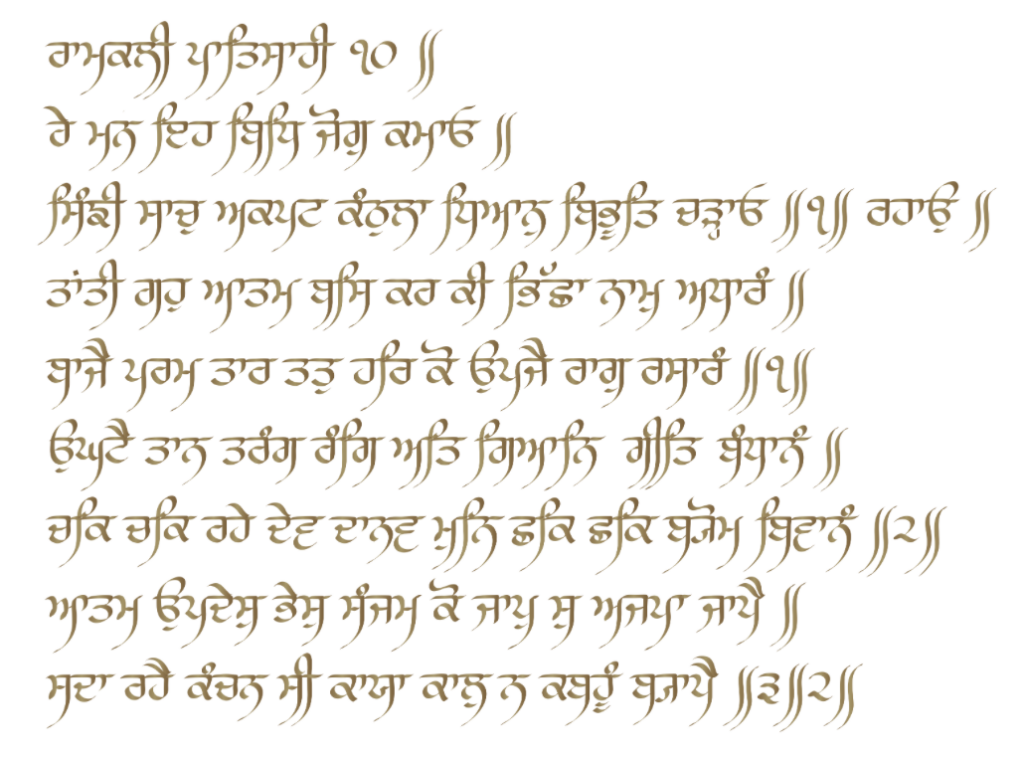 ਰਾਮਕਲੀ ਪਾਤਿਸਾਹੀ ੧੦ ॥
ਰੇ ਮਨ ਇਹ ਬਿਧਿ ਜੋਗੁ ਕਮਾਓ ॥
ਸਿੰਙੀ ਸਾਚੁ ਅਕਪਟ ਕੰਠੁਲਾ ਧਿਆਨੁ ਬਿਭੂਤਿ ਚੜ੍ਹਾਓ ॥੧॥ ਰਹਾਉ ॥
ਤਾਂਤੀ ਗਹੁ ਆਤਮ ਬਸਿ ਕਰ ਕੀ ਭਿੱਛਾ ਨਾਮੁ ਅਧਾਰੰ ॥
ਬਾਜੈ ਪਰਮ ਤਾਰ ਤਤੁ ਹਰਿ ਕੋ ਉਪਜੈ ਰਾਗੁ ਰਸਾਰੰ ॥੧॥
ਉਘਟੈ ਤਾਨ ਤਰੰਗ ਰੰਗਿ ਅਤਿ ਗਿਆਨਿ ਗੀਤਿ ਬੰਧਾਨੰ ॥
ਚਕਿ ਚਕਿ ਰਹੇ ਦੇਵ ਦਾਨਵ ਮੁਨਿ ਛਕਿ ਛਕਿ ਬਯੋਮ ਬਿਵਾਨੰ ॥੨॥
ਆਤਮ ਉਪਦੇਸੁ ਭੇਸੁ ਸੰਜਮ ਕੋ ਜਾਪੁ ਸੁ ਅਜਪਾ ਜਾਪੈ ॥
ਸਦਾ ਰਹੈ ਕੰਚਨ ਸੀ ਕਾਯਾ ਕਾਲੁ ਨ ਕਬਹੂੰ ਬਯਾਪੈ ॥੩॥੨॥